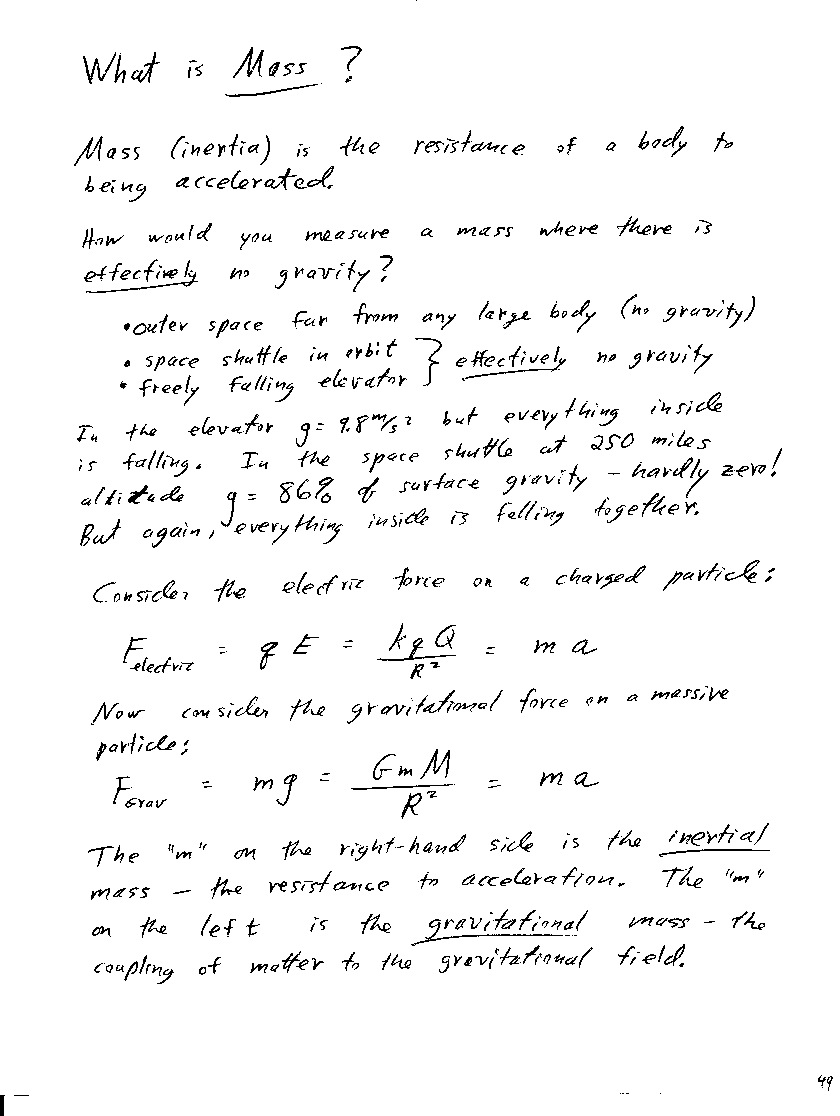 What is Mass ?
Mass (inertia) is the resistance of a body to
being accelerated.
How would you measure a mass where there is
effectively no gravity?
• outer space far from any large body (no gravity)
• space shuttle in orbit } effectively no gravity
• freely falling elevator
In the elevator g = 9.8 m/s² but everything inside
is falling. In the space shuttle at 250 miles
altitude g = 86% of surface gravity – hardly zero!
But again, everything inside is falling together.
Consider the electric force on a charged particle:
F_electric = qE = kqQ/R² = ma
Now consider the gravitational force on a massive
particle:
F_Grav = mg = GmM/R² = ma
The "m" on the right-hand side is the inertial
mass – the resistance to acceleration. The "m"
on the left is the gravitational mass – the
coupling of matter to the gravitational field.
49